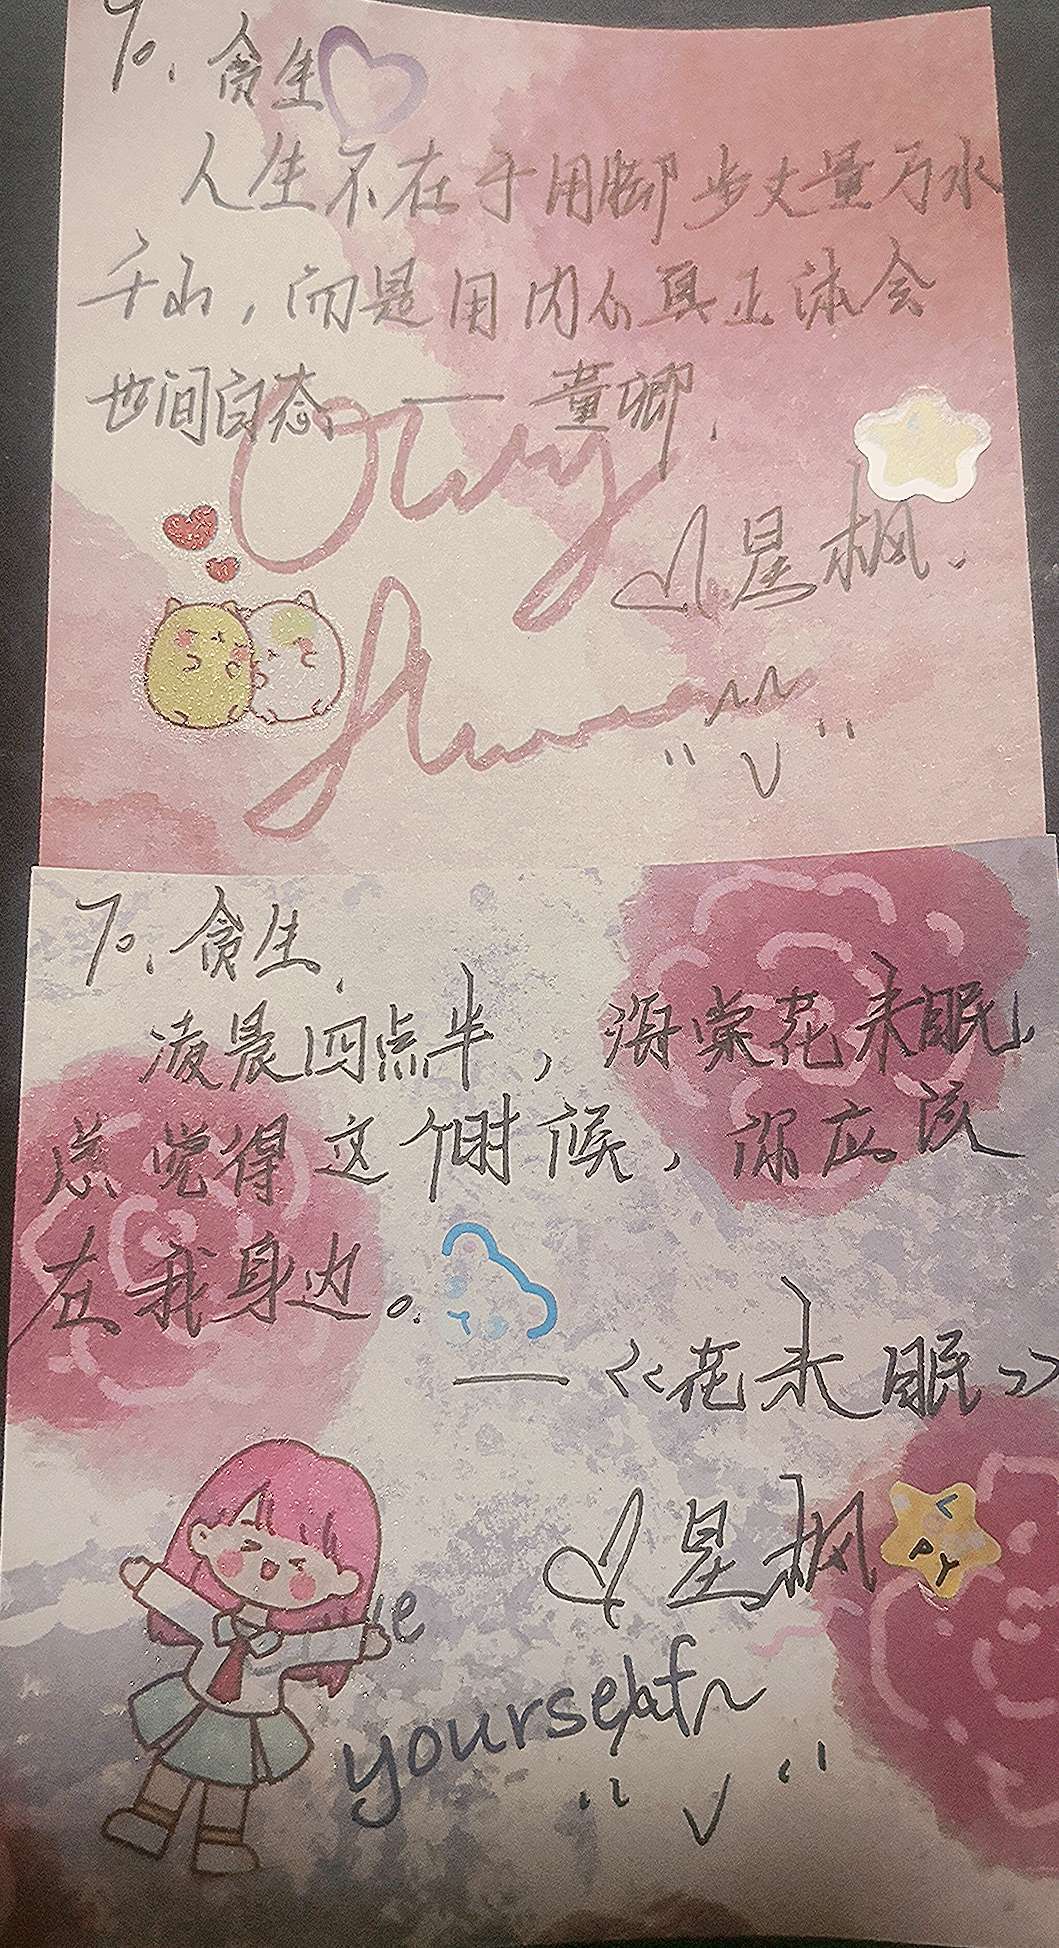 To. 贪生
人生不在于用脚步丈量万水
千山，而是用内心真正体会
世间百态 —— 董卿.
星枫.
To. 贪生.
凌晨四点半，海棠花未眠，
总觉得这个时候，你应该
在我身边。
——《花未眠》
星枫
yourself